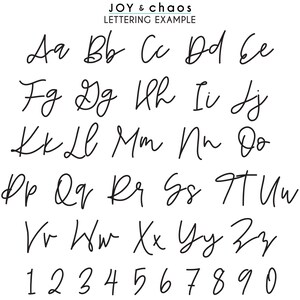 JOY & chaos
LETTERING EXAMPLE
Aa Bb Cc Dd Ee
Fg Gg Hh Ii Jj
Kk Ll Mm Nn Oo
Pp Qq Rr Ss Tt Uu
Vv Ww Xx Yy Zz
1 2 3 4 5 6 7 8 9 0